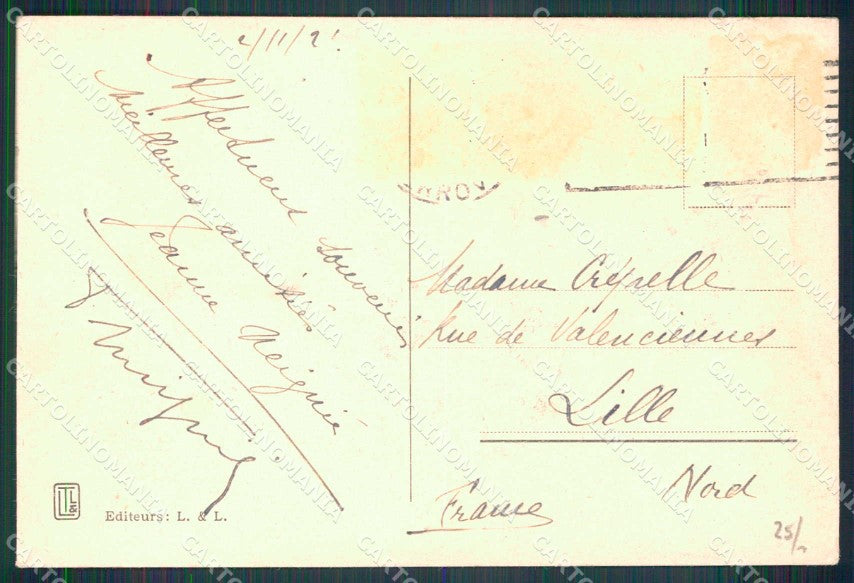 2/11/21
Affectueux souvenirs
Meilleures amitiés
Jeanne
Madame Crépelle
Rue de Valenciennes
Lille
Nord
France
25/-
L & L
Editeurs: L. & L.
CARTOLINOMANIA